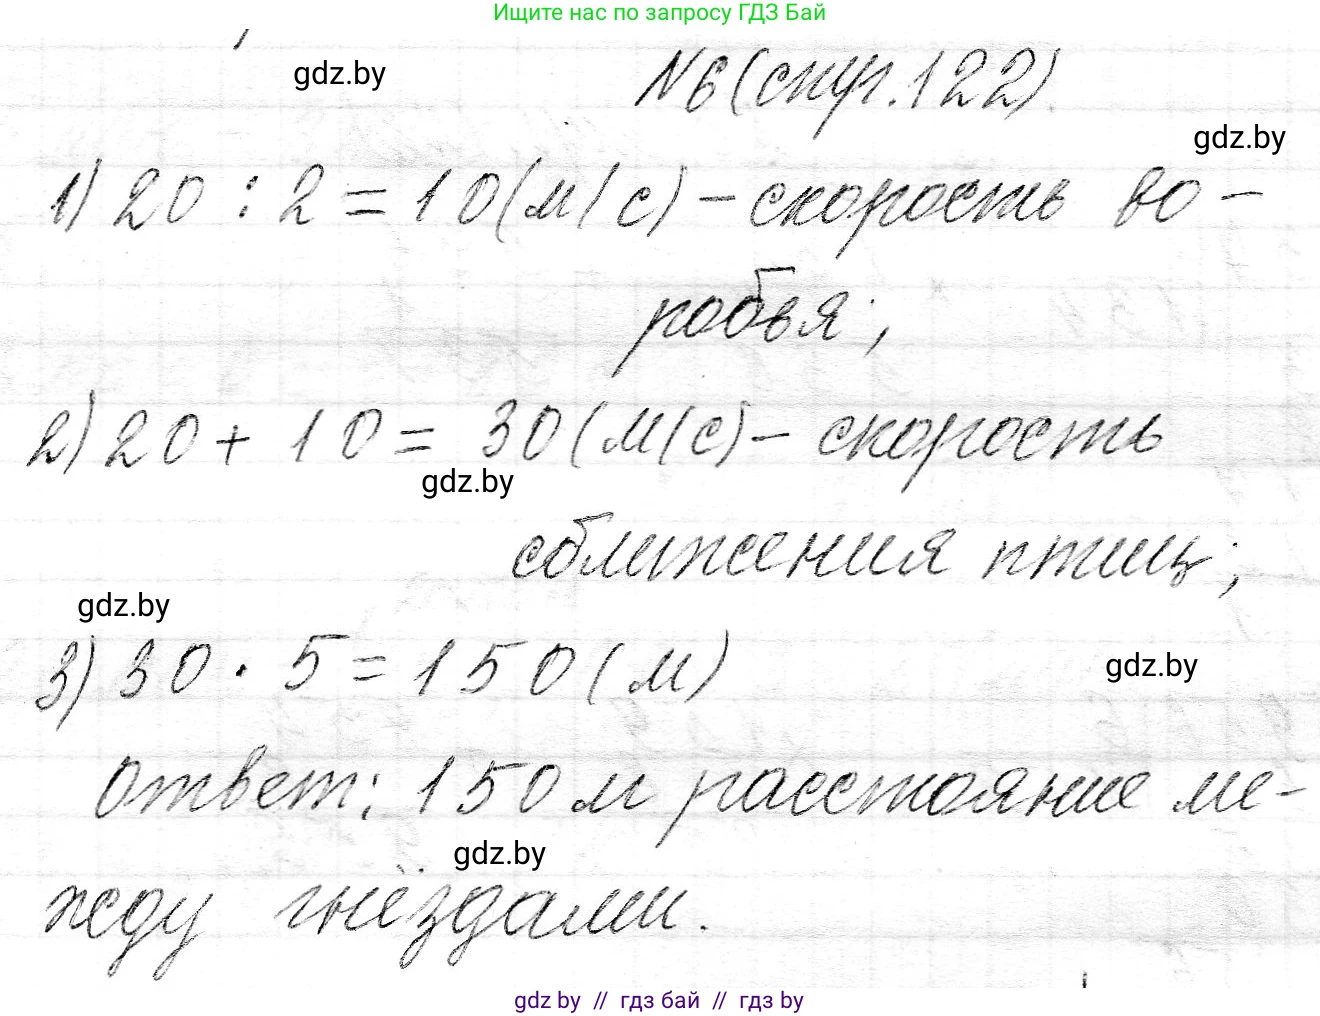 Ищите нас по запросу ГДЗ Бай
gdz.by
N6 (стр. 122).
gdz.by
1) 20 : 2 = 10 (м/с) - скорость во-
робья;
2) 20 + 10 = 30 (м/с) - скорость
gdz.by
сближения птиц;
gdz.by
3) 30 · 5 = 150 (м)
gdz.by
Ответ: 150 м расстояние ме-
gdz.by
жду гнёздами.
gdz.by // гдз бай // гдз by